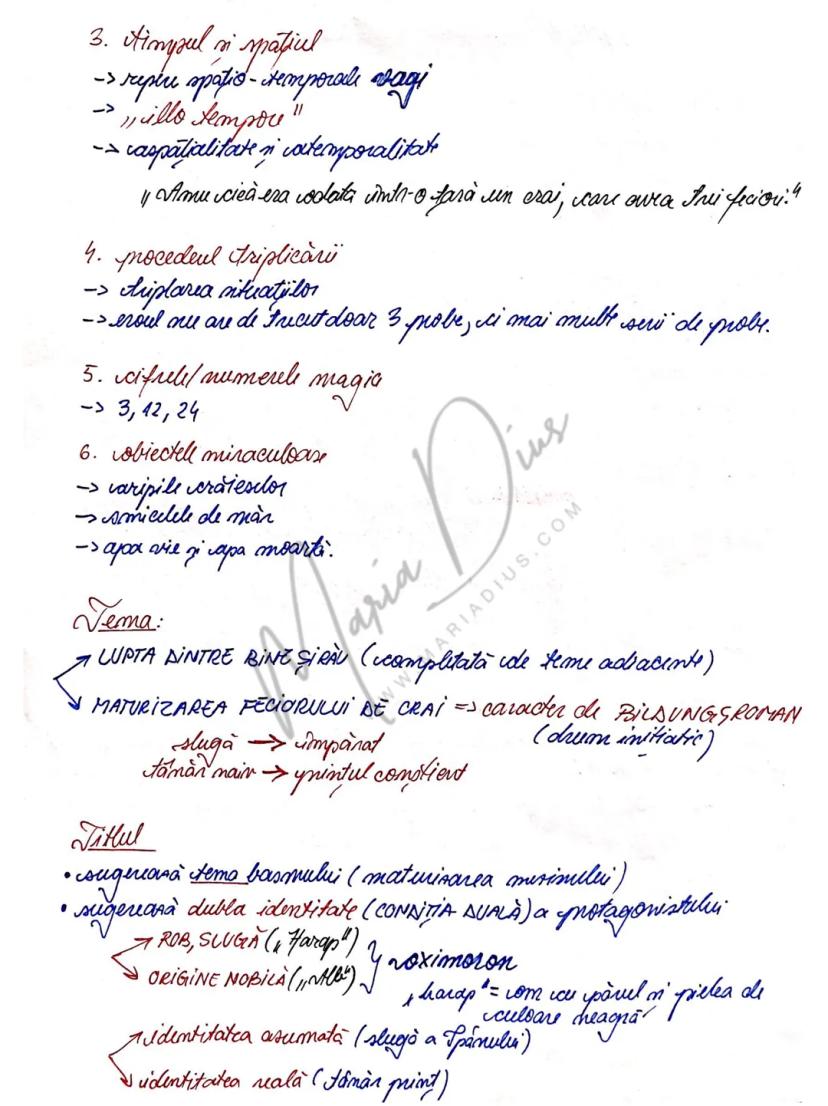 3. timpul și spațiul
-> repere spațio-temporale vagi
-> „illo tempore"
-> aspațialitate și atemporalitate
„Amu cică era odată într-o țară un crai, care avea trei feciori."
4. procedeul triplicării
-> triplarea situațiilor
-> eroul nu are de trecut doar 3 probe, ci mai multe serii de probe.
5. cifrele/numerele magice
-> 3, 12, 24
6. obiectele miraculoase
-> aripile crăieselor
-> smicelele de măr
-> apa vie și apa moartă.
Tema:
LUPTA DINTRE BINE ȘI RĂU (completată de teme adiacente)
MATURIZAREA FECIORULUI DE CRAI => caracter de BILDUNGSROMAN
slugă -> împărat (drum inițiatic)
tânăr naiv -> prințul conștient
Titlul
• sugerează tema basmului (maturizarea mezinului)
• sugerează dubla identitate (CONDIȚIA DUALĂ) a protagonistului
ROB, SLUGĂ („Harap")
ORIGINE NOBILĂ („Alb") } oximoron
„harap" = om cu părul și pielea de
culoare neagră
identitatea asumată (slugă a Spânului)
identitatea reală (tânăr prinț)
Maria Dius
WWW.MARIADIUS.COM